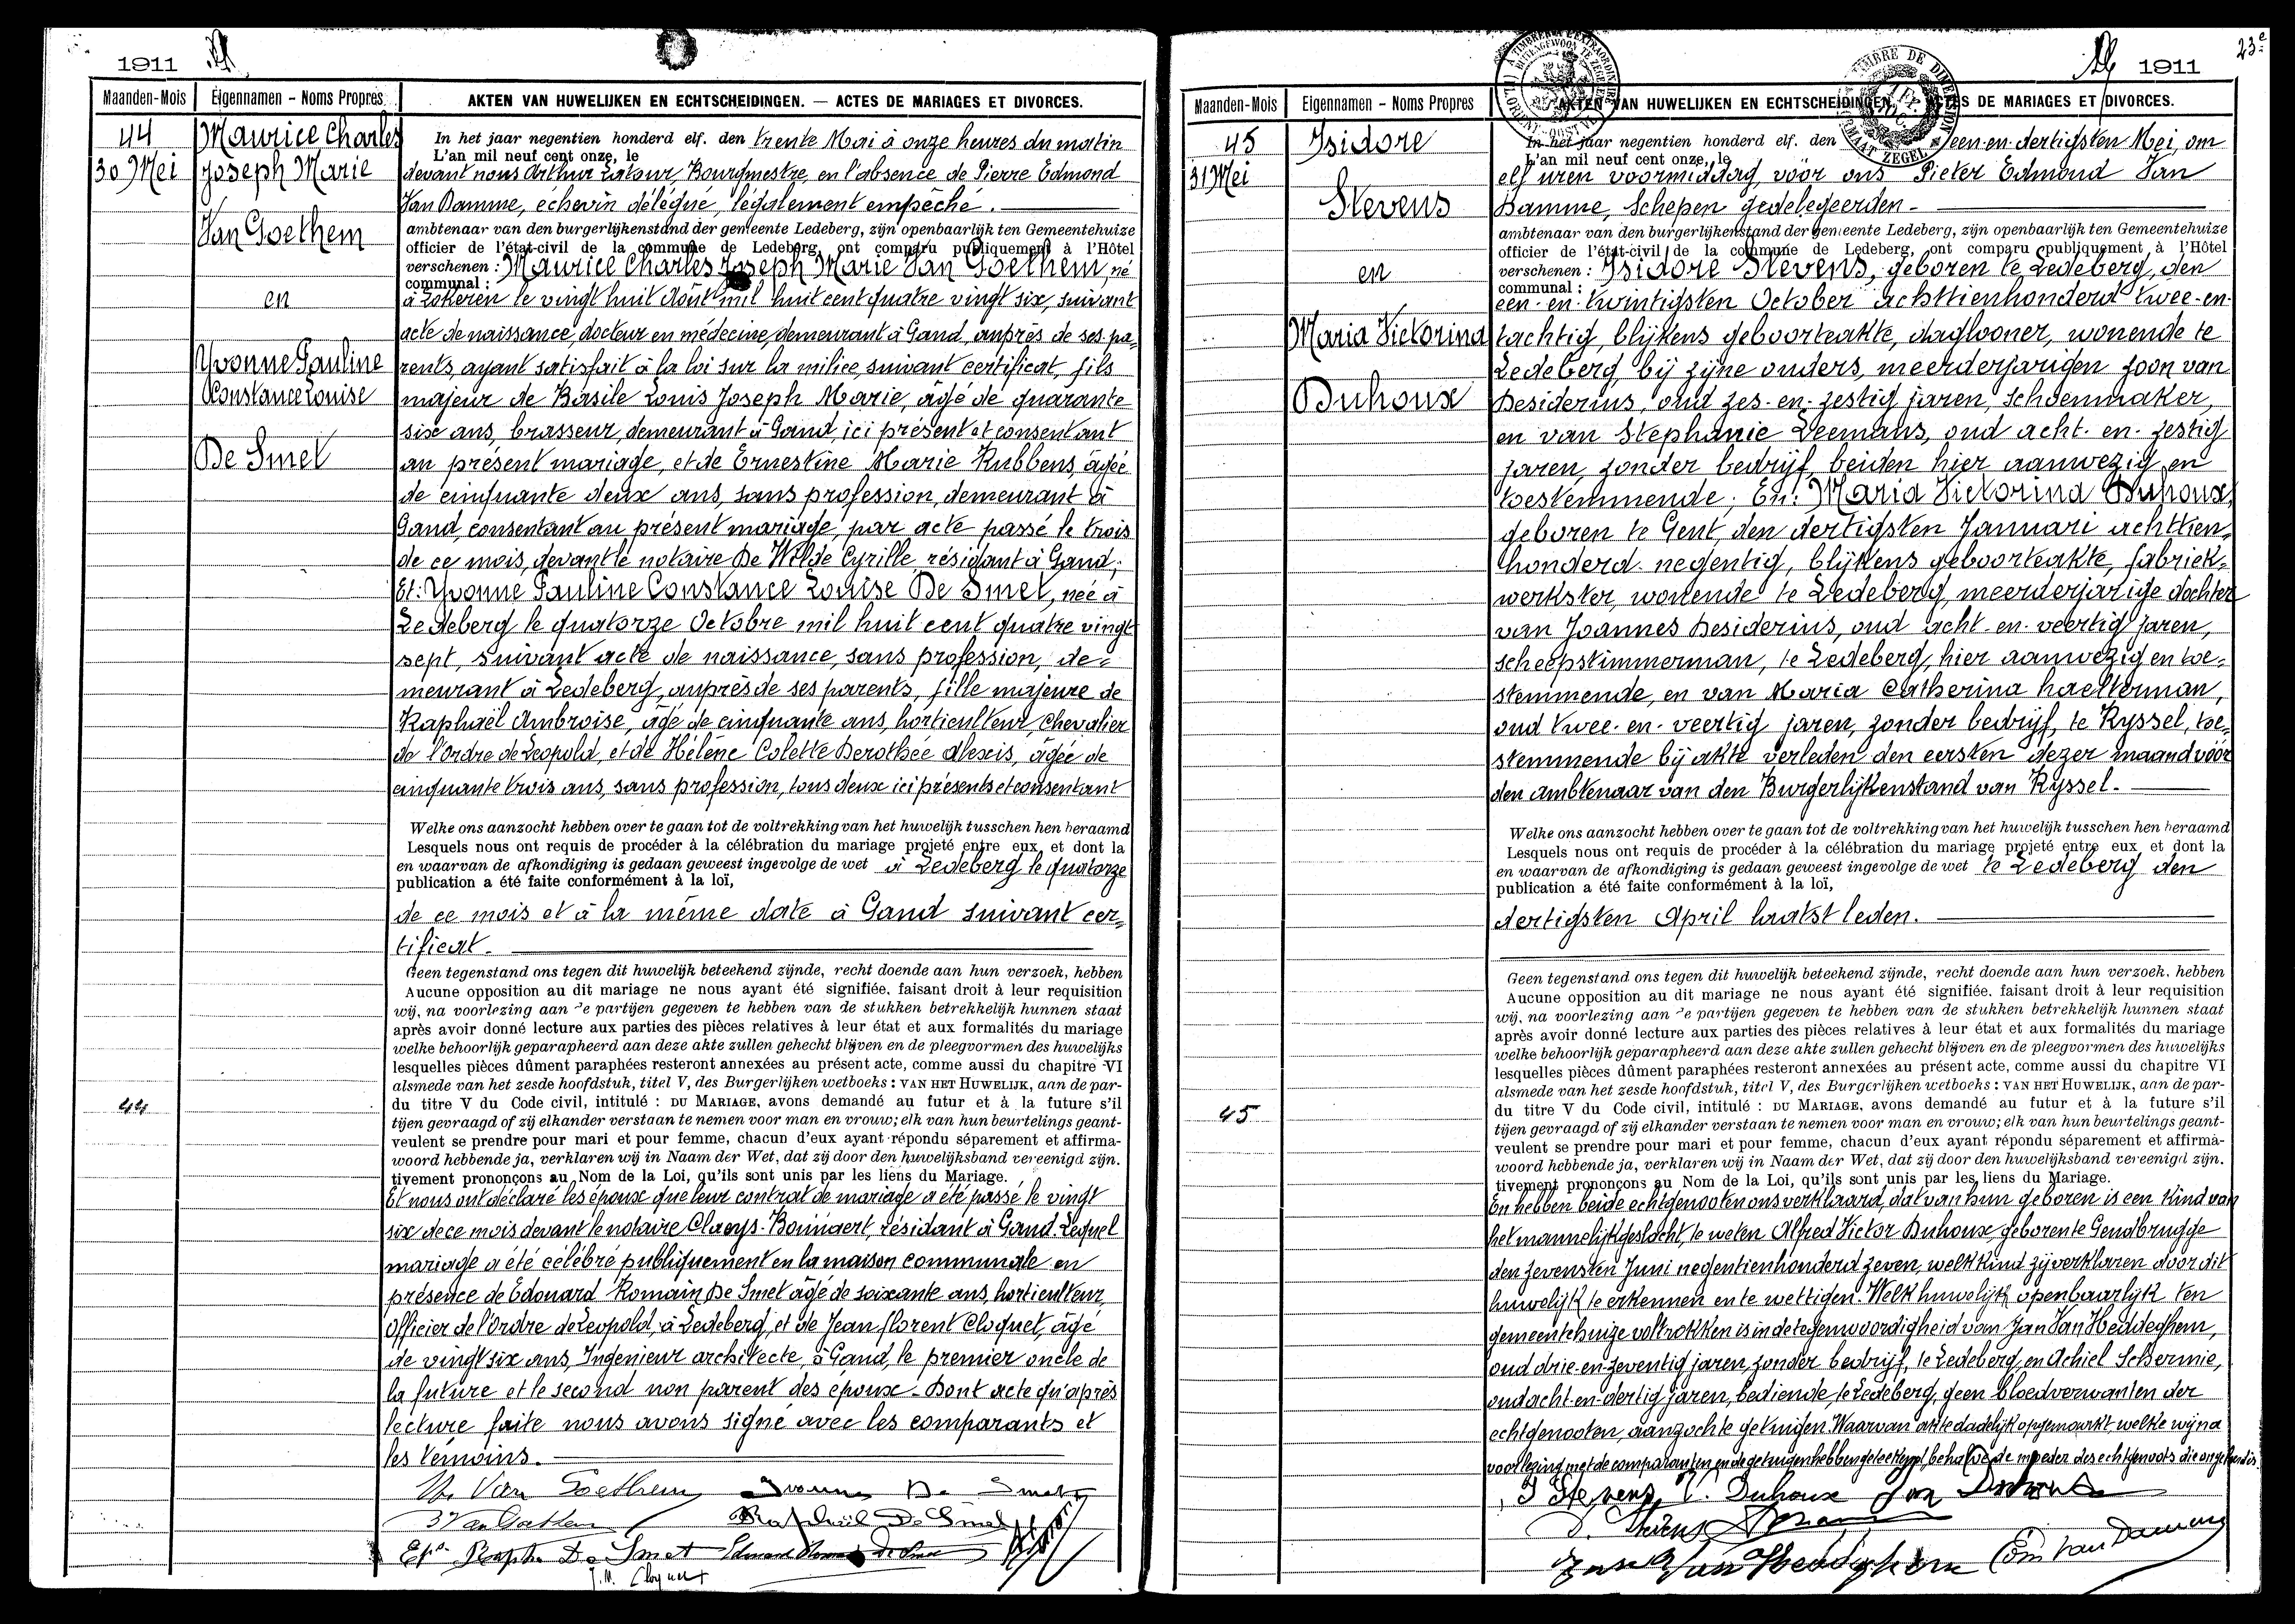 1911
Maanden-Mois
Eigennamen - Noms Propres
AKTEN VAN HUWELIJKEN EN ECHTSCHEIDINGEN. — ACTES DE MARIAGES ET DIVORCES.
44
30 Mei
Maurice Charles
Joseph Marie
Van Goethem
en
Yvonne Pauline
Constance Louise
De Smet
44
In het jaar negentien honderd elf. den trente Mai à onze heures du matin
L'an mil neuf cent onze, le
devant nous Arthur Latour, Bourgmestre, en l'absence de Pierre Edmond
Van Damme, échevin délégué, légalement empêché.
ambtenaar van den burgerlijkenstand der gemeente Ledeberg, zijn openbaarlijk ten Gemeentehuize
officier de l'état-civil de la commune de Ledeberg, ont comparu publiquement à l'Hôtel
verschenen : Maurice Charles Joseph Marie Van Goethem, né
communal :
à Lokeren le vingt huit Août mil huit cent quatre vingt six, suivant
acte de naissance, docteur en médecine, demeurant à Gand, auprès de ses pa=
rents, ayant satisfait à la loi sur la milice, suivant certificat, fils
majeur de Basile Louis Joseph Marie, âgé de quarante
six ans, brasseur, demeurant à Gand, ici présent et consentant
au présent mariage, et de Ernestine Marie Rubbens, âgée
de cinquante deux ans, sans profession, demeurant à
Gand, consentant au présent mariage, par acte passé le trois
de ce mois, devant le notaire De Wilde Cyrille, résidant à Gand;
Et: Yvonne Pauline Constance Louise De Smet, née à
Ledeberg le quatorze Octobre mil huit cent quatre vingt
sept, suivant acte de naissance, sans profession, de=
meurant à Ledeberg, auprès de ses parents, fille majeure de
Raphaël Ambroise, âgé de cinquante ans, horticulteur, Chevalier
de l'Ordre de Leopold, et de Hélène Colette Dorothée Alexis, âgée de
cinquante trois ans, sans profession, tous deux ici présents et consentant
Welke ons aanzocht hebben over te gaan tot de voltrekking van het huwelijk tusschen hen beraamd
Lesquels nous ont requis de procéder à la célébration du mariage projeté entre eux, et dont la
en waarvan de afkondiging is gedaan geweest ingevolge de wet à Ledeberg le quatorze
publication a été faite conformément à la loi,
de ce mois et à la même date à Gand suivant cer=
tificat.
Geen tegenstand ons tegen dit huwelijk beteekend zijnde, recht doende aan hun verzoek, hebben
Aucune opposition au dit mariage ne nous ayant été signifiée, faisant droit à leur requisition
wij, na voorlezing aan de partijen gegeven te hebben van de stukken betrekkelijk hunnen staat
après avoir donné lecture aux parties des pièces relatives à leur état et aux formalités du mariage
welke behoorlijk geparapheerd aan deze akte zullen gehecht blijven en de pleegvormen des huwelijks
lesquelles pièces dûment paraphées resteront annexées au présent acte, comme aussi du chapitre VI
alsmede van het zesde hoofdstuk, titel V, des Burgerlijken wetboeks : VAN HET HUWELIJK, aan de par-
du titre V du Code civil, intitulé : DU MARIAGE, avons demandé au futur et à la future s'il
tijen gevraagd of zij elkander verstaan te nemen voor man en vrouw; elk van hun beurtelings geant-
veulent se prendre pour mari et pour femme, chacun d'eux ayant répondu séparement et affirma-
woord hebbende ja, verklaren wij in Naam der Wet, dat zij door den huwelijksband vereenigd zijn.
tivement prononçons au Nom de la Loi, qu'ils sont unis par les liens du Mariage.
Et nous ont déclaré les époux que leur contrat de mariage a été passé le vingt
six de ce mois devant le notaire Claeys-Boúúaert, résidant à Gand. Lequel
mariage a été célébré publiquement en la maison communale en
présence de Edouard Romain De Smet âgé de soixante ans, horticulteur,
Officier de l'Ordre de Leopold, à Ledeberg, et de Jean Florent Cloquet, âgé
de vingt six ans, Ingenieur architecte, à Gand, le premier oncle de
la future et le second non parent des époux. Dont acte qu'après
lecture faite nous avons signé avec les comparants et
les témoins.
M. Van Goethem Yvonne De Smet
Van Goethem Raphaël De Smet
Eps. Raph. De Smet
J. M. Cloquet
23e
1911
Maanden-Mois
Eigennamen - Noms Propres
AKTEN VAN HUWELIJKEN EN ECHTSCHEIDINGEN. — ACTES DE MARIAGES ET DIVORCES.
45
31 Mei
Isidore
Stevens
en
Maria Victorina
Duhoux
45
In het jaar negentien honderd elf. den een en dertigsten Mei, om
L'an mil neuf cent onze, le
elf uren voormiddag, vóór ons Pieter Edmond Van
Damme, Schepen gedelegeerden.
ambtenaar van den burgerlijkenstand der gemeente Ledeberg, zijn openbaarlijk ten Gemeentehuize
officier de l'état-civil de la commune de Ledeberg, ont comparu publiquement à l'Hôtel
verschenen : Isidore Stevens, geboren te Ledeberg, den
communal :
een-en-twintigsten October achttienhonderd twee-en-
tachtig, blijkens geboorteakte, daglooner, wonende te
Ledeberg, bij zijne ouders, meerderjarigen zoon van
Desiderius, oud zes-en-zestig jaren, schoenmaker,
en van Stephanie Leemans, oud acht-en-zestig
jaren, zonder bedrijf, beiden hier aanwezig en
toestemmende; En: Maria Victorina Duhoux,
geboren te Gent, den dertigsten Januari achttien=
honderd negentig, blijkens geboorteakte, fabriek=
werkster, wonende te Ledeberg, meerderjarige dochter
van Joannes Desiderius, oud acht-en-veertig jaren,
scheepstimmerman, te Ledeberg, hier aanwezig en toe=
stemmende, en van Maria Catherina Haelterman,
oud twee-en-veertig jaren, zonder bedrijf, te Ryssel, toe=
stemmende bij akte verleden den eersten dezer maand vóór
den ambtenaar van den Burgerlijkenstand van Ryssel.
Welke ons aanzocht hebben over te gaan tot de voltrekking van het huwelijk tusschen hen beraamd
Lesquels nous ont requis de procéder à la célébration du mariage projeté entre eux, et dont la
en waarvan de afkondiging is gedaan geweest ingevolge de wet te Ledeberg den
publication a été faite conformément à la loi,
dertigsten April laatst leden.
Geen tegenstand ons tegen dit huwelijk beteekend zijnde, recht doende aan hun verzoek, hebben
Aucune opposition au dit mariage ne nous ayant été signifiée, faisant droit à leur requisition
wij, na voorlezing aan de partijen gegeven te hebben van de stukken betrekkelijk hunnen staat
après avoir donné lecture aux parties des pièces relatives à leur état et aux formalités du mariage
welke behoorlijk geparapheerd aan deze akte zullen gehecht blijven en de pleegvormen des huwelijks
lesquelles pièces dûment paraphées resteront annexées au présent acte, comme aussi du chapitre VI
alsmede van het zesde hoofdstuk, titel V, des Burgerlijken wetboeks : VAN HET HUWELIJK, aan de par-
du titre V du Code civil, intitulé : DU MARIAGE, avons demandé au futur et à la future s'il
tijen gevraagd of zij elkander verstaan te nemen voor man en vrouw; elk van hun beurtelings geant-
veulent se prendre pour mari et pour femme, chacun d'eux ayant répondu séparement et affirma-
woord hebbende ja, verklaren wij in Naam der Wet, dat zij door den huwelijksband vereenigd zijn.
tivement prononçons au Nom de la Loi, qu'ils sont unis par les liens du Mariage.
En hebben beide echtgenooten ons verklaard, dat van hun geboren is een kind van
het mannelijk geslacht, te weten Alfred Victor Duhoux, geboren te Gendbrugge
den zevensten Juni negentienhonderd zeven, welk kind zij verklaren door dit
huwelijk te erkennen en te wettigen. Welk huwelijk openbaarlijk ten
gemeentehuize voltrokken is in de tegenwoordigheid van Jan Van Heddeghem,
oud drie-en-zeventig jaren, zonder bedrijf, te Ledeberg, en Achiel Schermie,
oud acht-en-dertig jaren, bediende, te Ledeberg, geen bloedverwanten der
echtgenooten, aanzochte getuigen. Waarvan akte dadelijk opgemaakt, welke wij na
voorlezing met de comparanten en de getuigen hebben geteekend, behalve de moeder des echtgenoots die
I Stevens, V. Duhoux
D. Stevens
Jan Van Heddeghem Edm Van Damme